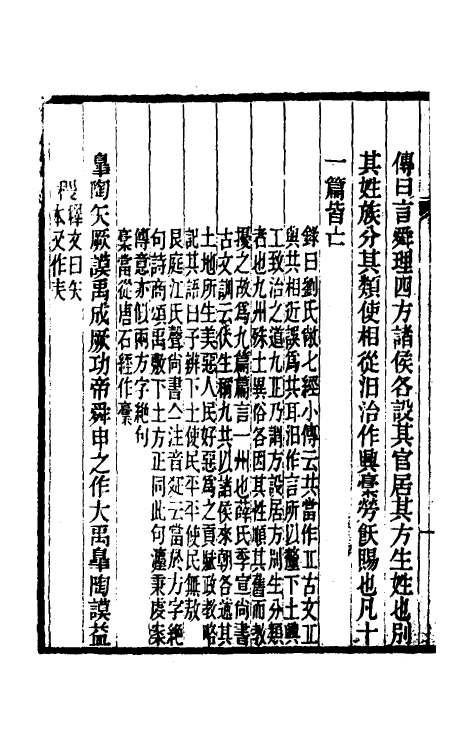 傳曰言舜理四方諸侯各設其官居其方生姓也別
其姓族分其類使相從汩治作興稾勞飫賜也凡十
一篇皆亡
錄曰劉氏敞七經小傳云共當作𠀌古文𠀌
與共相近誤爲共耳汩作言所以釐下土興
工致治之道九𠀌乃謂方設居方別生分類
者也九州殊土異俗各因其性順其舊而教
擾之故爲九篇篇言一州也薛氏季宣尚書
古文訓云伏生稱九共以諸侯來朝各述其
土地所生美惡人民好惡爲之貢賦政教略
記其語曰予辨下土使民平平使民無敖
艮庭江氏聲尚書亼注音疏云當於方字絶
句詩商頌禹敷下土方正同此句瀍秉虔案
傳意亦似兩方字絶句
稾當從唐石經作槀
皐陶矢厥謨禹成厥功帝舜申之作大禹皐陶謨益
稷釋文曰矢
本又作夫